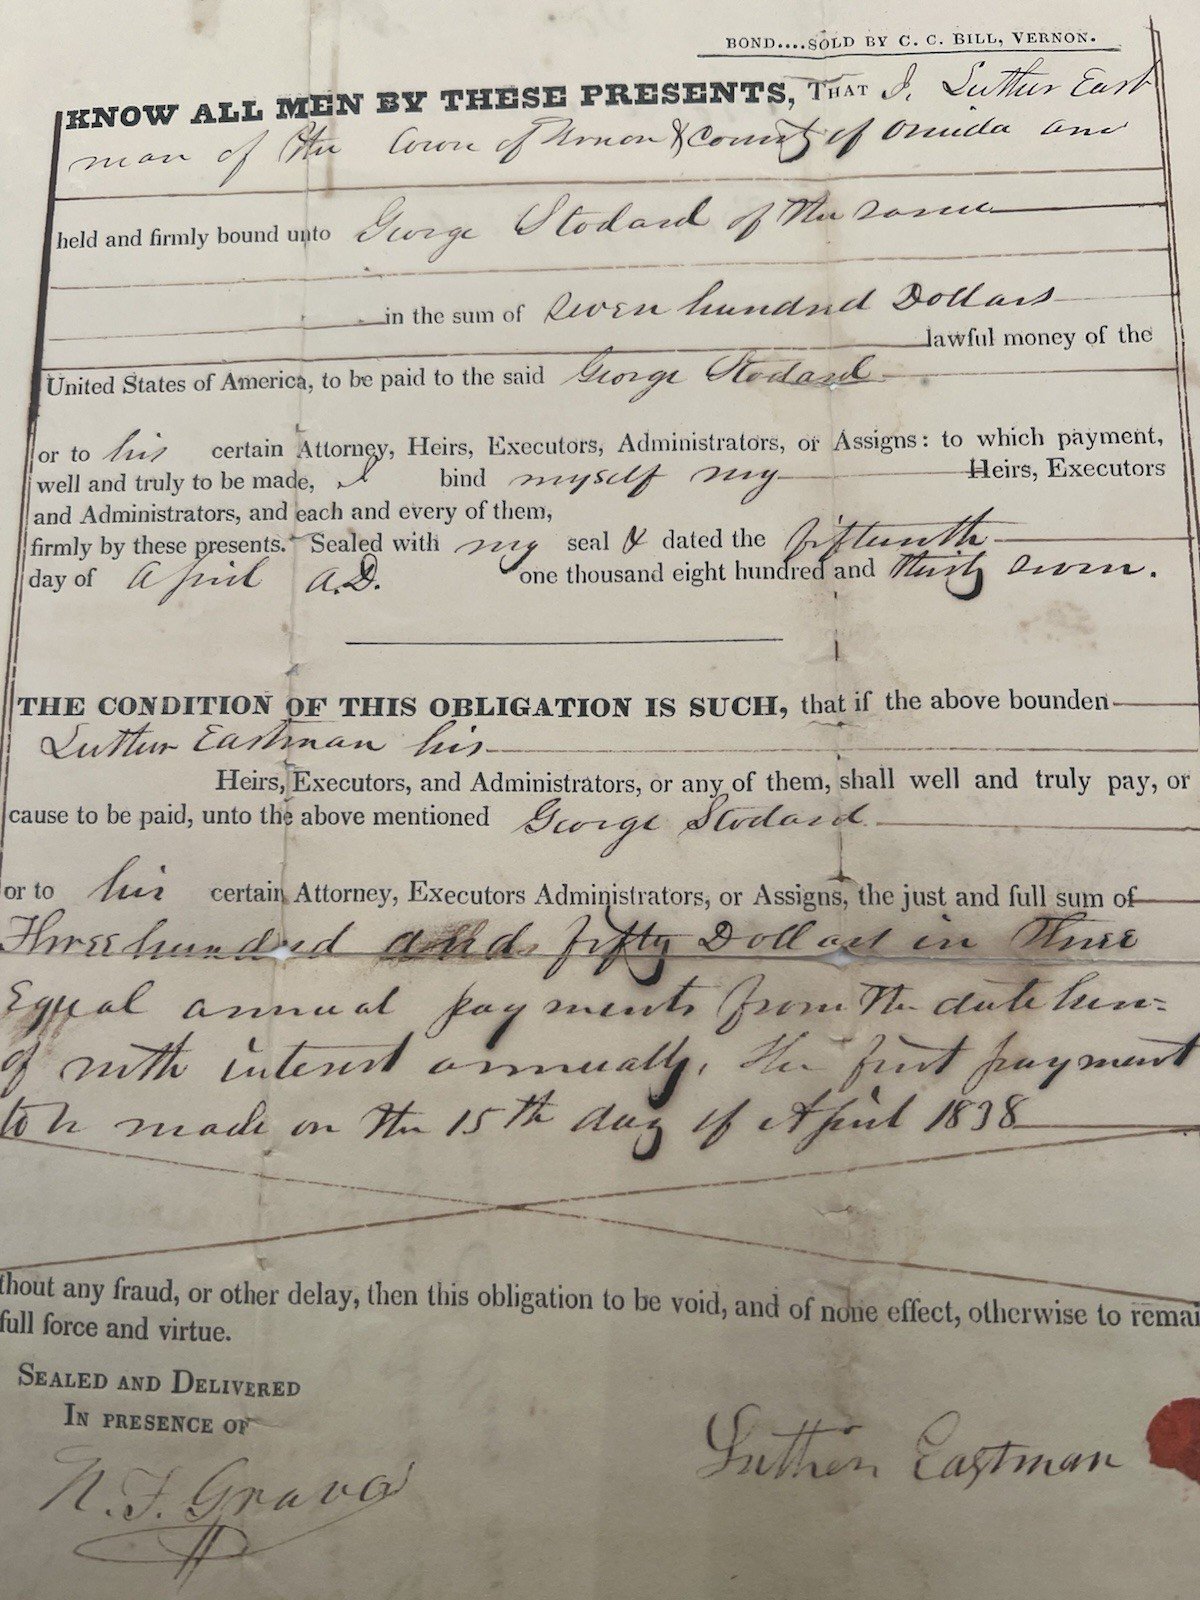 BOND....SOLD BY C. C. BILL, VERNON.
KNOW ALL MEN BY THESE PRESENTS, THAT I, Luther East
man of the Town of Vernon & County of Oneida am
held and firmly bound unto George Stodard of the same
in the sum of seven hundred Dollars
lawful money of the
United States of America, to be paid to the said George Stodard
or to his certain Attorney, Heirs, Executors, Administrators, or Assigns: to which payment,
well and truly to be made, I bind myself my Heirs, Executors
and Administrators, and each and every of them,
firmly by these presents. Sealed with my seal & dated the fifteenth
day of April A.D. one thousand eight hundred and thirty seven.
THE CONDITION OF THIS OBLIGATION IS SUCH, that if the above bounden
Luther Eastman his
Heirs, Executors, and Administrators, or any of them, shall well and truly pay, or
cause to be paid, unto the above mentioned George Stodard
or to his certain Attorney, Executors Administrators, or Assigns, the just and full sum of
Three hundred and fifty Dollars in three
Equal annual payments from the date here=
of with interest annually, the first payment
to be made on the 15th day of April 1838
thout any fraud, or other delay, then this obligation to be void, and of none effect, otherwise to remai
full force and virtue.
SEALED AND DELIVERED
IN PRESENCE OF
N. F. Graves
Luther Eastman